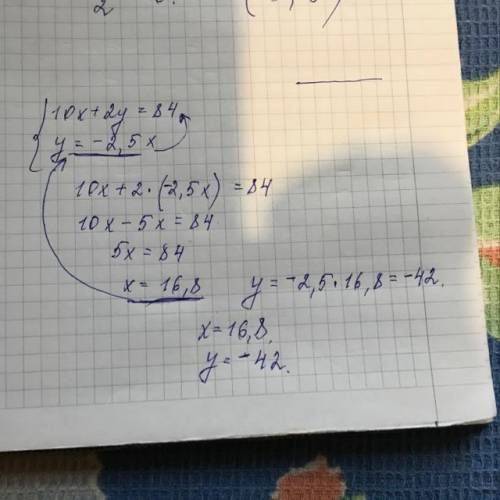 10x+2y=84
y=-2,5x
10x+2·(-2,5x)=84
10x-5x=84
5x=84
x=16,8 y=-2,5·16,8=-42.
x=16,8,
y=-42.